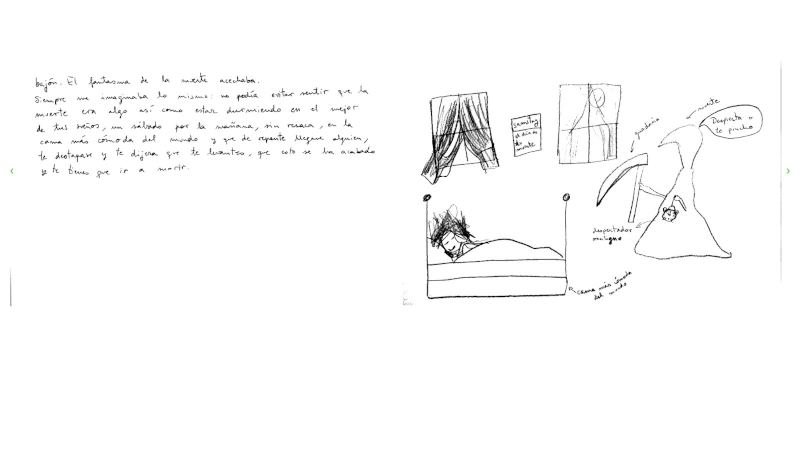 bajón. El fantasma de la muerte acechaba.
Siempre me imaginaba lo mismo: no podía evitar sentir que la
muerte era algo así como estar durmiendo en el mejor
de tus sueños, un sábado por la mañana, sin resaca, en la
cama más cómoda del mundo y que de repente llegue alguien,
te destapase y te dijera que te levantes, que esto se ha acabado
y te tienes que ir a morir.
samstag
el día de
tu muerte
guadaña
muerte
Despierta o
te pincho
despertador
maligno
cama más cómoda
del mundo